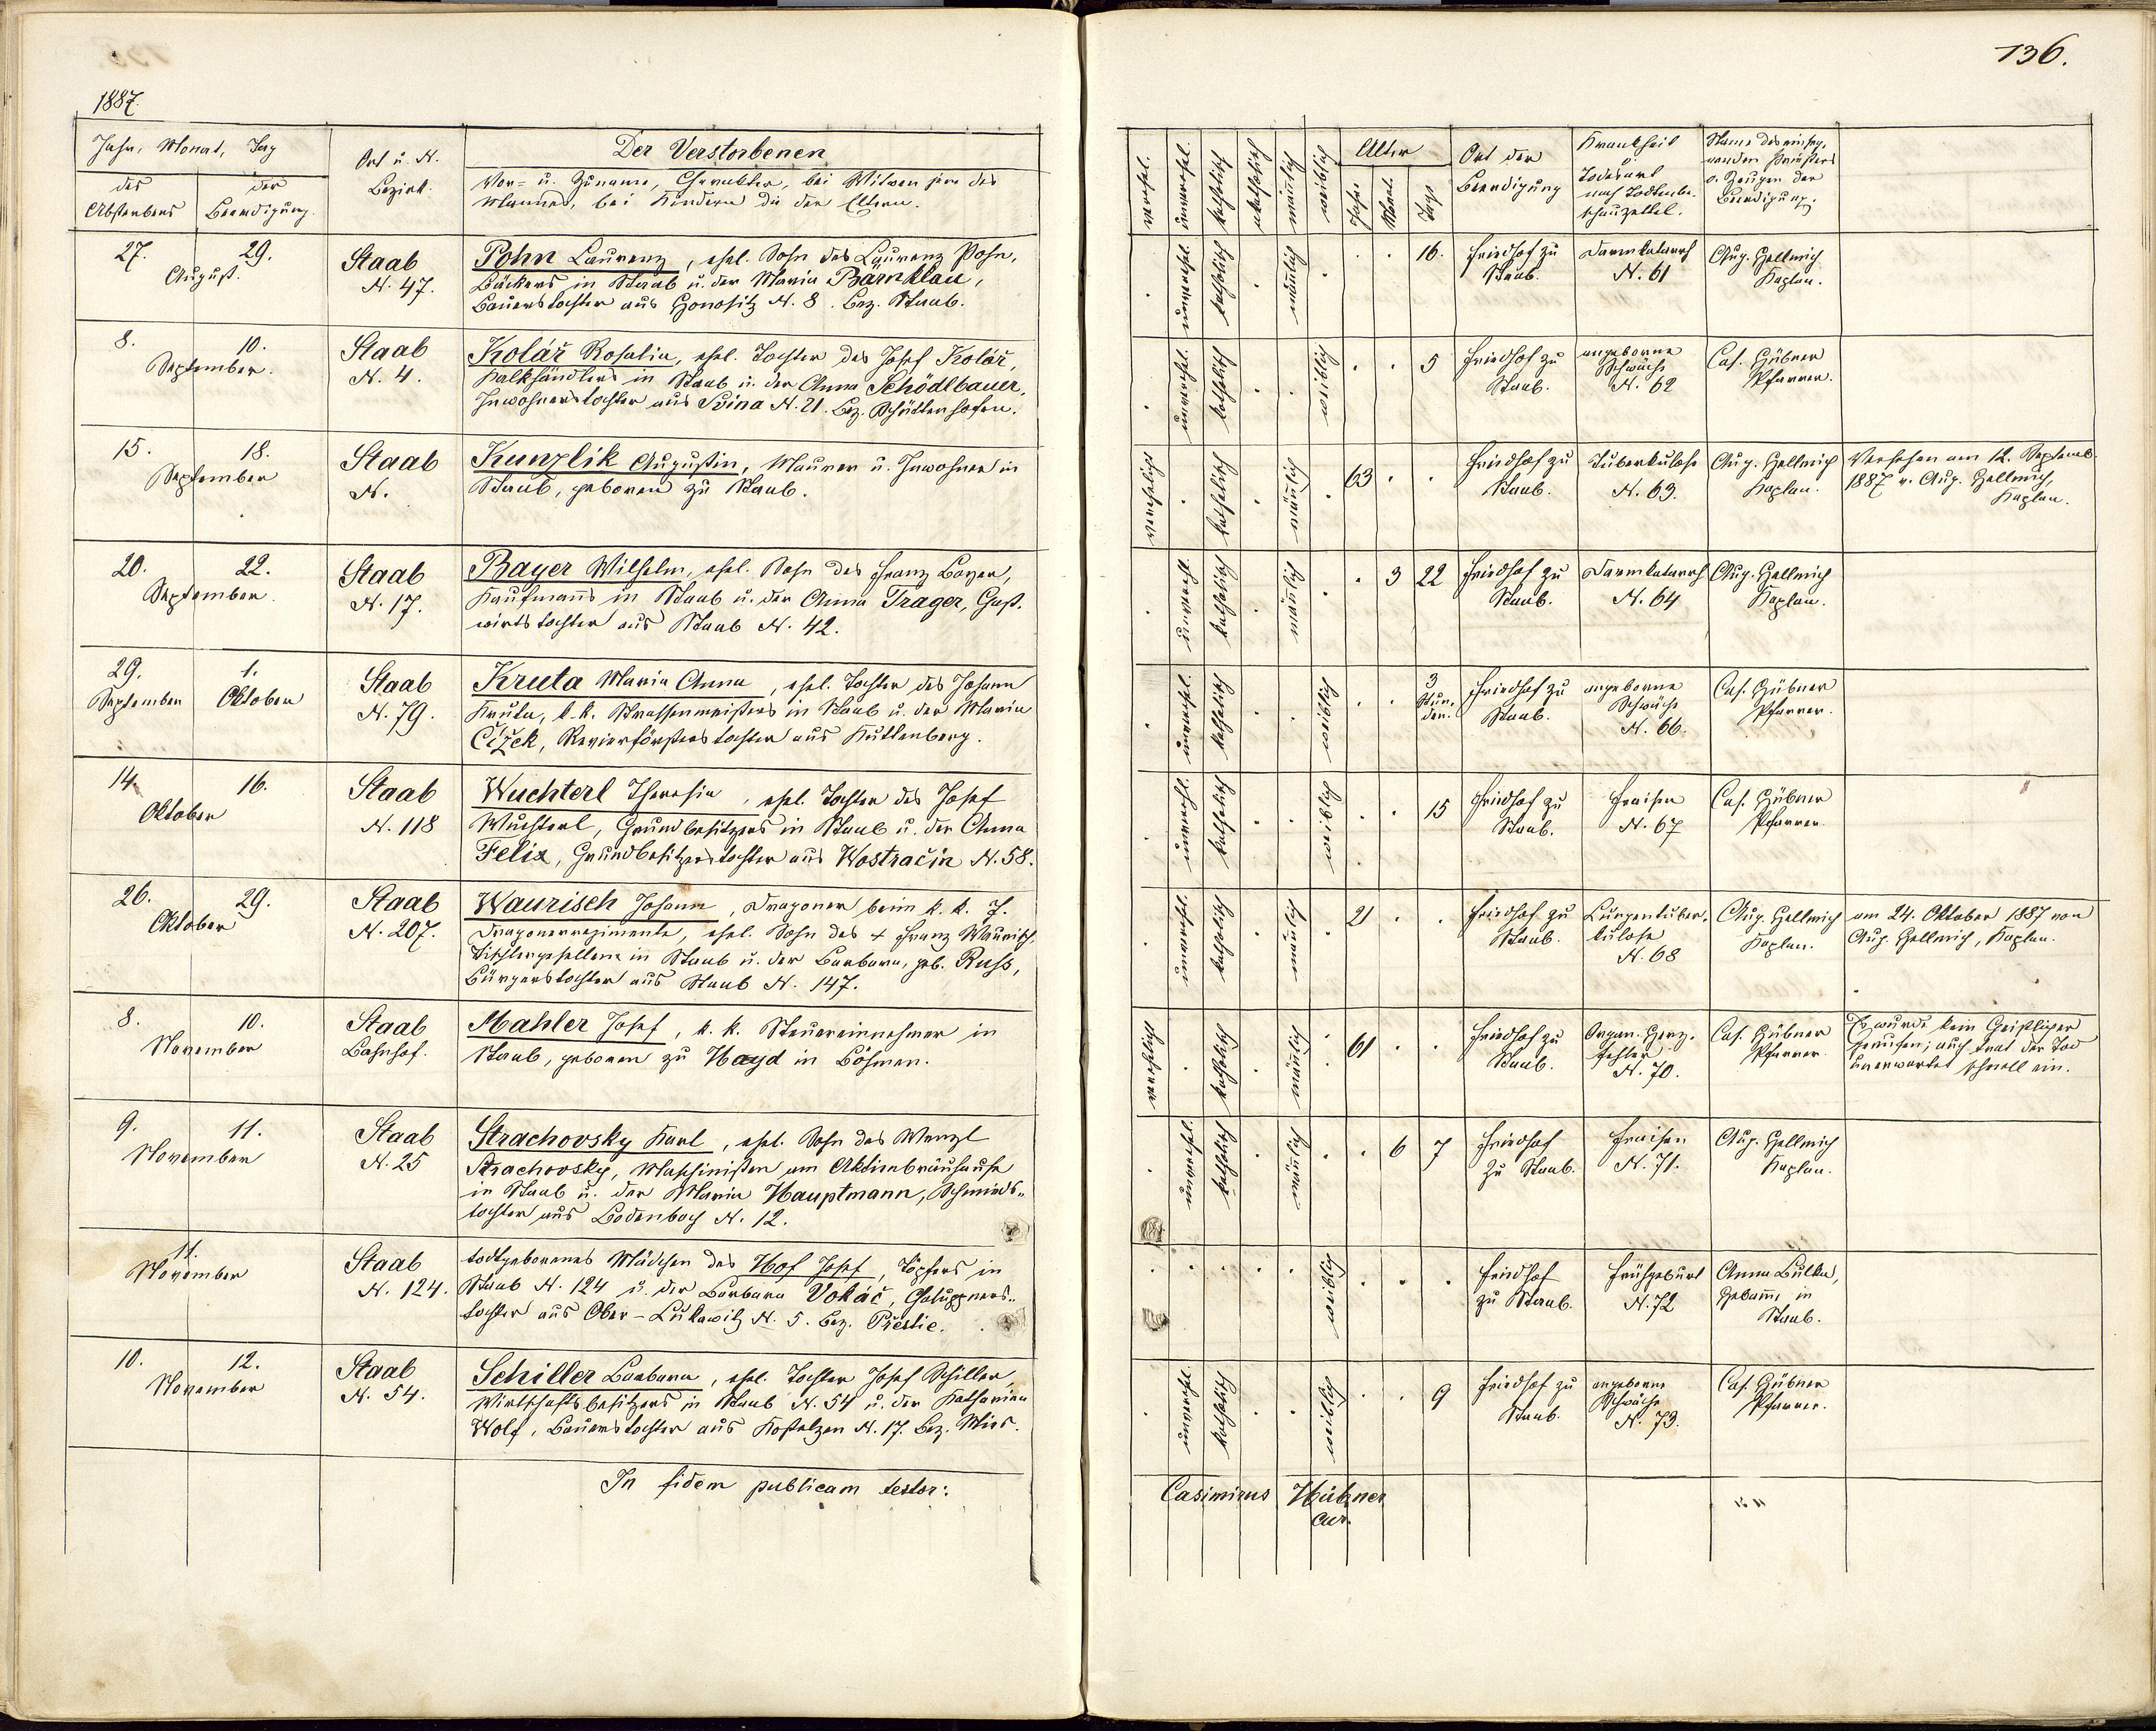 136.
1887.
Jahr, Monat, Tag
des Absterbens
der Beerdigung.
Ort u. N.
Bezirk.
Der Verstorbenen
Vor= u. Zuname, Charakter, bei Witwen jene des
Mannes, bei Kindern die der Eltern.
27. 29.
August.
Staab
N. 47.
Pohn Laurenz, ehel. Sohn des Laurenz Pohn,
Bäckers in Staab u. der Maria Bärnklau,
Bauerstochter aus Honositz N. 8. Bez. Staab.
8. 10.
September.
Staab
N. 4.
Kolář Rosalia, ehel. Tochter des Josef Kolář,
Kalkhändlers in Staab u. der Anna Schödlbauer,
Inwohnerstochter aus Svina N. 21. Bez. Schüttenhofen.
15. 18.
September
Staab
N.
Kunzlik Augustin, Maurer u. Inwohner in
Staab, geboren zu Staab.
20. 22.
September.
Staab
N. 17.
Bayer Wilhelm, ehel. Sohn des Franz Bayer,
Kaufmanns in Staab u. der Anna Trager, Gast-
wirtstochter aus Staab N. 42.
29. 1.
September Oktober
Staab
N. 79.
Kruta Maria Anna, ehel. Tochter des Johann
Kruta, k.k. Strassenmeisters in Staab u. der Maria
Čížek, Revierförsterstochter aus Kuttenberg.
14. 16.
Oktober
Staab
N. 118
Wuchterl Theresia, ehel. Tochter des Josef
Wuchterl, Grundbesitzers in Staab u. der Anna
Felix, Grundbesitzerstochter aus Wostračin N. 58.
26. 29.
Oktober
Staab
N. 207.
Waurisch Johann, Dragoner beim k. k. 7.
Dragonerregimente, ehel. Sohn des + Franz Waurisch
Tischlergesellen in Staab u. der Barbara, geb. Russ,
Bürgerstochter aus Staab N. 147.
8. 10.
November
Staab
Bahnhof.
Mahler Josef, k. k. Steuereinnehmer in
Staab, geboren zu Hayd in Böhmen.
9. 11.
November
Staab
N. 25
Strachovsky Karl, ehel. Sohn des Wenzl
Strachovsky, Maschinisten am Aktienbräuhause
in Staab u. der Maria Hauptmann, Schmieds-
tochter aus Bodenbach N. 12.
11.
November
Staab
N. 124.
todtgeborenes Mädchen des Hof Josef, Töpfers in
Staab N. 124 u. der Barbara Vokáč, Chaluppners-
tochter aus Ober-Lukawitz N. 5. Bez. Přestic.
10. 12.
November
Staab
N. 54.
Schiller Barbara, ehel. Tochter Josef Schiller,
Wirtschaftsbesitzers in Staab N. 54 u. der Katharina
Wolf, Bauerstochter aus Kostelzen N. 17. Bez. Mies.
In fidem publicam testor:
verehel. unverehel. katholisch akatholisch männlich weiblich
Alter
Jahre Monat. Tage
Ort der
Beerdigung
Krankheit
o.
Todesart
nach Todtenbe-
schauzettel.
Name des einseg-
nenden Priesters
o. Zeugen der
Beerdigung.
unverehel. katholisch männlich 16.
Friedhof zu
Staab.
Darmkatarrh
N. 61
Aug. Hellmich
Kaplan.
unverehel. katholisch weiblich 5
Friedhof zu
Staab.
angeborne
Schwäche
N. 62
Cas. Hübner
Pfarrer.
verehelicht katholisch männlich 63
Friedhof zu
Staab.
Tuberkulose
N. 63.
Aug. Hellmich
Kaplan.
Versehen am 12. Septemb.
1887 v. Aug. Hellmich,
Kaplan.
unverehl. katholisch männlich 3 22
Friedhof zu
Staab.
Darmkatarrh
N. 64
Aug. Hellmich
Kaplan.
unverehel. katholisch weiblich 3
Stun-
den.
Friedhof zu
Staab.
angeborne
Schwäche
N. 66.
Cas. Hübner
Pfarrer.
unverehl. katholisch weiblich 15
Friedhof zu
Staab.
Fraisen
N. 67
Cas. Hübner
Pfarrer.
unverehl. katholisch männlich 21
Friedhof zu
Staab.
Lungentuber-
kulose
N. 68
Aug. Hellmich
Kaplan.
am 24. Oktober 1887 von
Aug. Hellmich, Kaplan.
verehelicht katholisch männlich 61
Friedhof zu
Staab.
Organ. Herz-
fehler
N. 70.
Cas. Hübner
Pfarrer.
Es wurde kein Geistlicher
gerufen; auch trat der Tod
unerwartet schnell ein.
unverehel. katholisch männlich 6 7
Friedhof
zu Staab.
Fraisen
N. 71.
Aug. Hellmich
Kaplan.
weiblich
Friedhof
zu Staab.
Frühgeburt
N. 72
Anna Bulka,
Hebamme in
Staab.
unverehl. katholisch weiblich 9
Friedhof zu
Staab.
angeborne
Schwäche
N. 73.
Cas. Hübner
Pfarrer.
Casimirus Hübner
Cur.